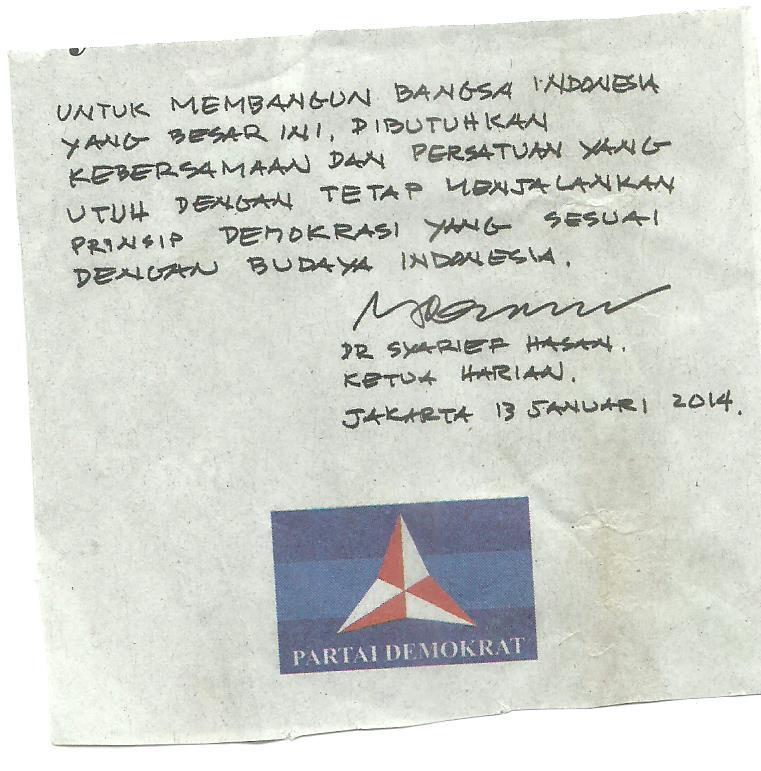 UNTUK MEMBANGUN BANGSA INDONESIA
YANG BESAR INI, DIBUTUHKAN
KEBERSAMAAN DAN PERSATUAN YANG
UTUH DENGAN TETAP MENJALANKAN
PRINSIP DEMOKRASI YANG SESUAI
DENGAN BUDAYA INDONESIA.
DR SYARIEF HASAN.
KETUA HARIAN.
JAKARTA 13 JANUARI 2014.
PARTAI DEMOKRAT